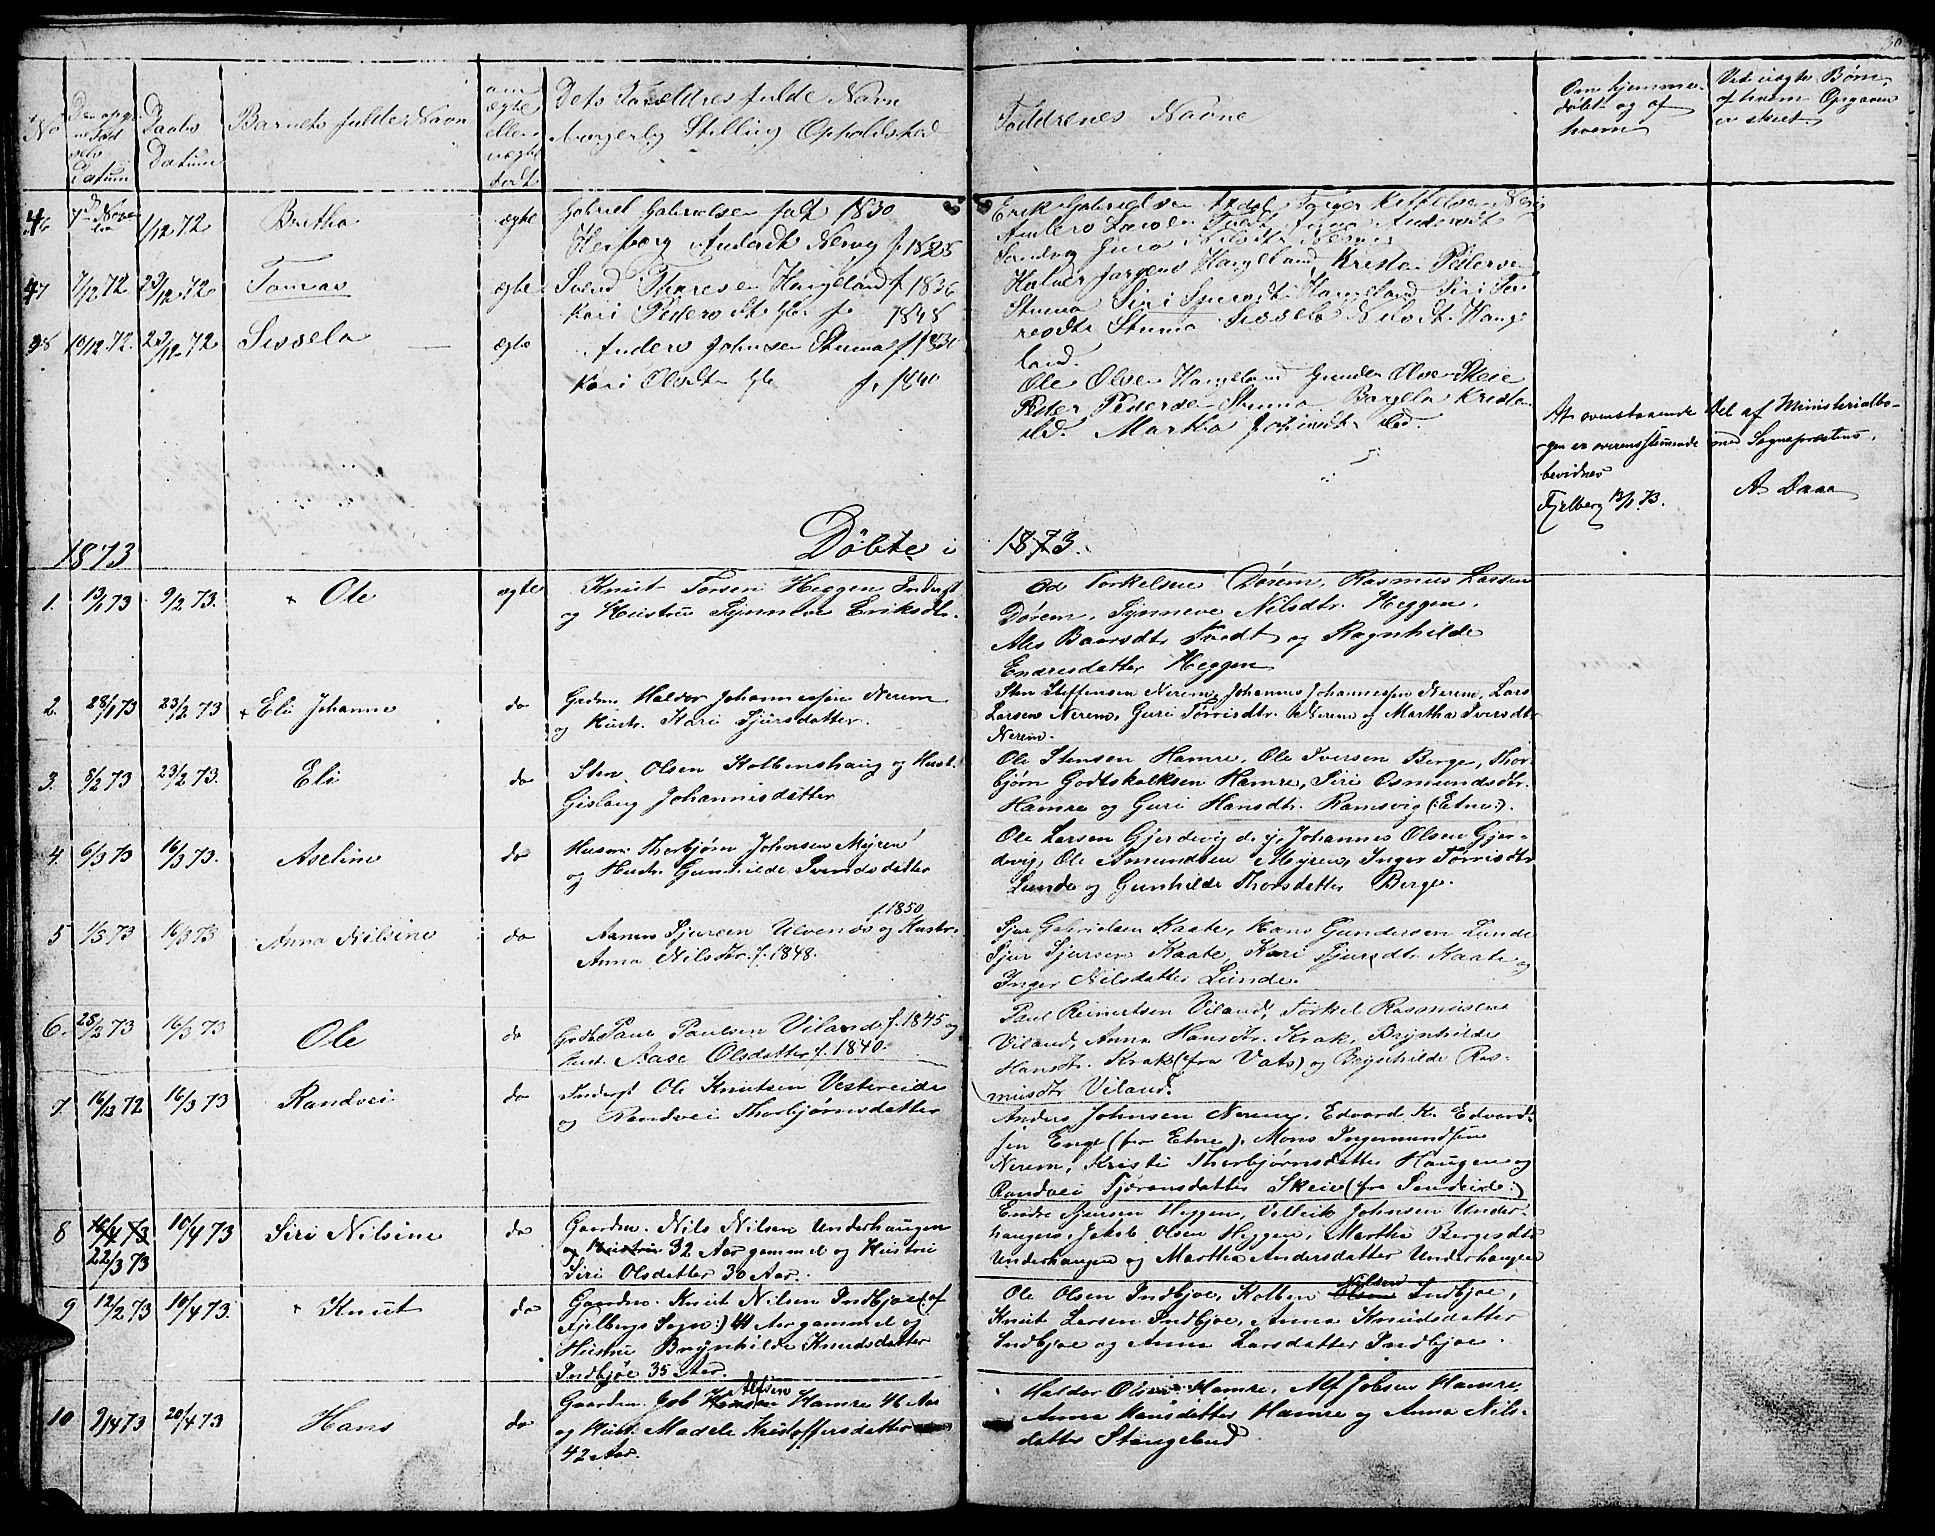 No
Daabs
Datum
Barnets fulde Navn
ægte
eller
uægte
født
Dets Forældres fulde Navn
borgerlig Stilling Opholdsted
Faddrenes Navne
Om hjemme-
døbt og af
hvem
Ved uægte Børn
af hvem Opgaven
er skeet
46
1/12 72
Bretha
ægte
Gabriel Gabrielsen født 1830
47
7/12 72
23/12 72
Tomas
ægte
Svend Haugeland f 1836
Kari Pedersdt f. 1848
Halver Haugeland, Kristen Pedersen
48
10/12 72.
23/12 72
Sissela
ægte
Anders Johnsen Stuma
Kari Olsdtr f. 1840
land.
Ole Olsen Haugeland Gunder Olsen Skeie
Peter Pedersen Stuma
Martha
At ovenstaaende Del af Ministerialbo-
gen er overensstemmende med Sognepræstens,
bevidnes
Fjelberg 13/1 73.
A Daae
1873
Døbte i 1873.
1.
13/1 73
9/2 73.
Ole
ægte
Knut Torsen Heggen Inderst
og Hustru Synneve Eriksdtr.
Od Torkelsen Dørem, Rasmus Larsen
Dørem, Synneve Nilsdtr. Heggen,
Ales Baarsdtr Tvedt og Ragnhilde
Endresdatter Heggen
2.
28/1 73
23/2 73
Eli Johanne
do
Grdm. Haldor Johannessen Nerem
og Hustr. Kari Sjursdatter.
Sten Steffensen Nerem, Johannes Johannessen Nerem, Lars
Larsen Nerem, Guri Tørrisdtr. Nerem og Martha Iversdtr
Nerem.
3.
8/2 73
23/2 73.
Eli
do
Sten Olsen Kolbenshaug og Hustr.
Gislaug Johannisdatter
Ole Stensen Hamre, Ole Iversen Berge, Thor-
bjørn Godtskalksen Hamre, Siri Osmundsdtr.
Hamre og Guri Hansdtr. Ramsvig (: Etne:).
4.
6/3 73
16/3 73.
Aseline
do
Husm. Thorbjørn Johnsen Myren
og Hustr. Gunhilde Svendsdatter
Ole Larsen Gjerdevig d. y, Johannes Olsen Gjer-
devig, Ole Amundsen Myren, Inger Tørrisdtr
Lunde og Gunhilde Thorsdatter Berge.
5
1/3 73
16/3 73
Anna Nilsine
do
f. 1850
Sjursen Ulvenes og Hustr.
Anna Nilsdtr. f. 1848.
Sjur Gabrielsen Kaate, Hans Gundersen Lunde
Sjur Sjursen Kaate, Kari Sjursdtr Kaate og
Inger Nilsdatter Lunde.
6.
25/2 73
16/3 73
Ole
do
Paul Paulsen Viland f. 1845 og
Hustr. Aase Olsdatter f. 1840.
Paul Reinertsen Viland, Torkel Rasmussen
Viland, Anna Hansdtr. Krak, Brynhilde
Hansdtr. Krak (fra Vats) og Brynhilde Ras-
musdtr Viland.
7
16/12 72
16/3 73
Randvei
do
Inderst Ole Knutsen Vestereide
og Randvei Thorbjørnsdatter
Anders Johnsen Nerem, Edvard K. Edvard-
sen Enge (fra Etne), Mons Ingemundsen
Nerem, Kristi Thorbjørnsdatter Haugen og
Randvei Tjøransdatter Skeie (fra Sandeide:)
8
16/4 73
22/3 73
10/4 73
Siri Nilsine
do
Gaardm. Nils Nilsen Underhaugen
og Hustru 32 Aar gammel og Hustru
Siri Olsdatter 30 Aar.
Endre Sjursen Heggen, Vellik Johnsen Under-
haugen, Jakob Olsen Heggen, Martha Bergesdtr
Underhaugen og Martha Andersdatter Underhaugen
9
12/2 73
10/4 73.
Knut
do
Gaardm. Knut Nilsen Indbjoe (af
Fjelbergs Sogn:) 44 Aar gammel og
Hustru Brynhilde Knudsdatter
Indbjoe 35 Aar.
Ole Olsen Indbjoe, Kolben Olsen Nilsen Indbjoe,
Knut Larsen Indbjoe, Anna Knudsdatter
Indbjoe og Anna Larsdatter Indbjoe.
10
9/4 73
20/4 73
Hans
do
Gaardm. Job Hansen Alfsen Hamre 46 Aar
og Hust. Madele Kristoffersdatter
42 Aar.
Haldor Olsen Hamre, Alf Jobsen Hamre,
Anna Hansdatter Hamre og Anna Nils-
datter Stangeland